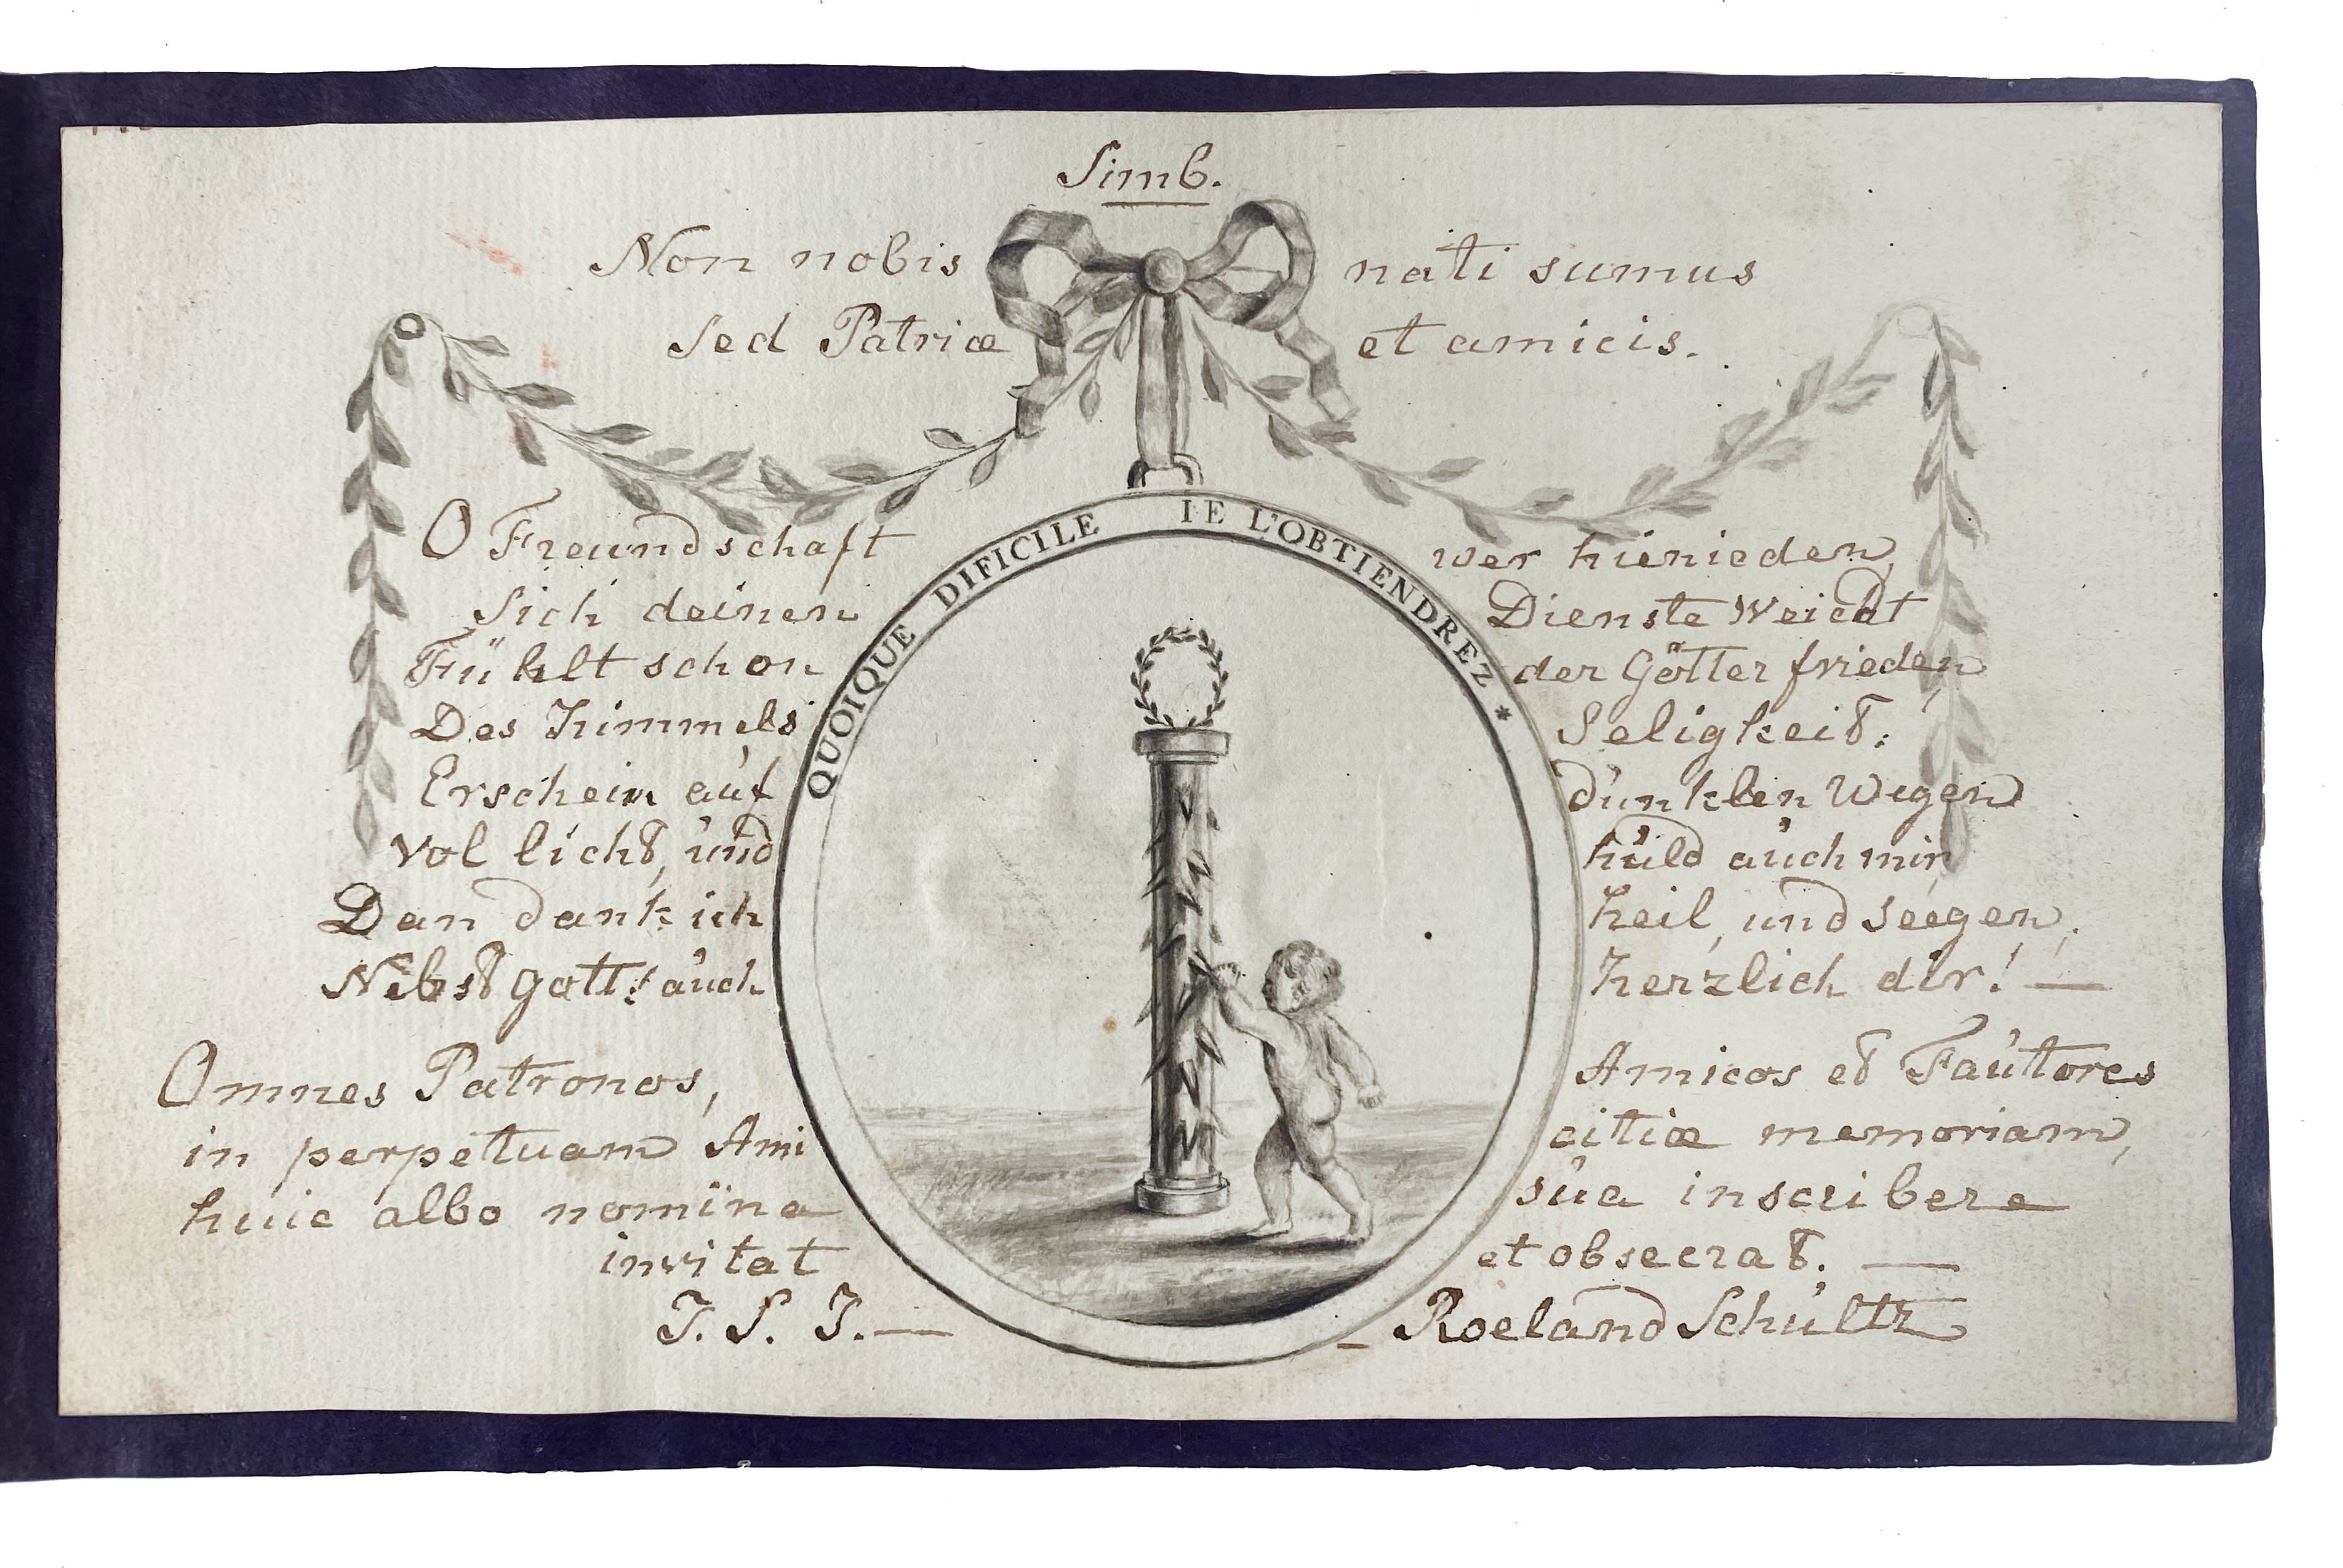 Simb.
Non nobis nati sumus
sed Patriæ et amicis.
QUOIQUE DIFICILE IE L'OBTIENDREZ *
O Freundschaft wer hienieden,
Sich deinen Dienste Weicht
Fühlt schon der Götter frieden
Des Himmels Seligkeit:
Erschein auf dunklen Wegen
Vol licht, und huld auch mir,
Dan dank ich heil, und seegen,
Nebst gott: auch herzlich dir! —
Omnes Patronos, Amicos et Fautores
in perpetuam Ami citiæ memoriam,
huic albo nomina sua inscribere
invitat et obsecrat. —
J. S. J. — — Roeland Schultz